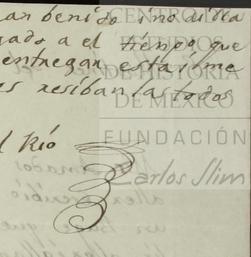 an benido ino aidia
gado a el tiempo que
entregan esta ilme
es resiban las todos
l Rio
CENTRO DE
ESTUDIOS
DE HISTORIA
DE MÉXICO
FUNDACIÓN
Carlos Slim